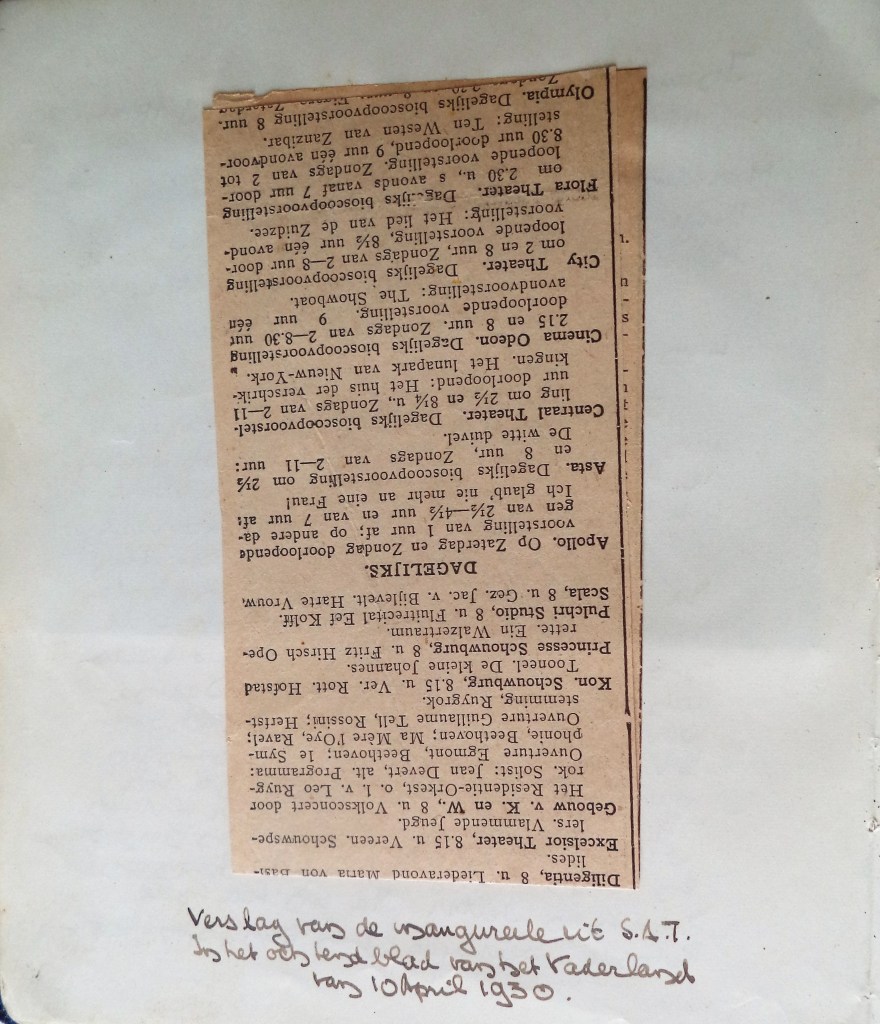 Diligentia, 8 u. Liederavond Maria von Basi-
lides.
Excelsior Theater, 8.15 u. Vereen. Schouwspe-
lers. Vlammende Jeugd.
Gebouw v. K. en W., 8 u. Volksconcert door
Het Residentie-Orkest, o. l. v. Leo Ruyg-
rok. Solist: Jean Devert, alt. Programma:
Ouverture Egmont, Beethoven; 1e Sym-
phonie, Beethoven; Ma Mère l'Oye, Ravel;
Ouverture Guillaume Tell, Rossini; Herfst-
stemming, Ruygrok.
Kon. Schouwburg, 8.15 u. Ver. Rott. Hofstad
Tooneel. De kleine Johannes.
Princesse Schouwburg, 8 u. Fritz Hirsch Ope-
rette. Ein Walzertraum.
Pulchri Studio, 8 u. Fluitrecital Eef Kolff.
Scala, 8 u. Gez. Jac. v. Bijlevelt. Harte Vrouw.
DAGELIJKS.
Apollo. Op Zaterdag en Zondag doorloopende
voorstelling van 1 uur af; op andere da-
gen van 2½—4½ uur en van 7 uur af:
Ich glaub' nie mehr an eine Frau!
Asta. Dagelijks bioscoopvoorstelling om 2½
en 8 uur, Zondags van 2—11 uur:
De witte duivel.
Centraal Theater. Dagelijks bioscoopvoorstel-
ling om 2½ en 8¼ u., Zondags van 2—11
uur doorloopend: Het huis der verschrik-
kingen. Het lunapark van Nieuw-York.
Cinema Odeon. Dagelijks bioscoopvoorstelling
2.15 en 8 uur. Zondags van 2—8.30 uur
doorloopende voorstelling. 9 uur één
avondvoorstelling: The Showboat.
City Theater. Dagelijks bioscoopvoorstelling
om 2 en 8 uur, Zondags van 2—8 uur door-
loopende voorstelling, 8½ uur één avond-
voorstelling: Het lied van de Zuidzee.
Flora Theater. Dagelijks bioscoopvoorstelling
om 2.30 u., s avonds vanaf 7 uur door-
loopende voorstelling. Zondags van 2 tot
8.30 uur doorloopend, 9 uur één avondvoor-
stelling: Ten Westen van Zanzibar.
Olympia. Dagelijks bioscoopvoorstelling 8 uur.
Verslag van de inaugurele uit S.A.T.
In het ochtendblad van het Vaderland
van 10 April 1930.